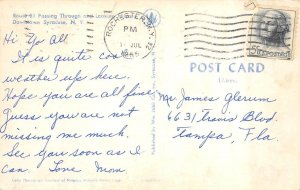 Route 81 Passing Through and Looking
Downtown Syracuse, N. Y.
Hi Yo All
It is quite cool
weather up here.
Hope you are all fine
Guess you are not
missing me much.
See you soon as I
can. Love Mom
ROCHESTER, N.Y.
PM
JUL
U.S. Postage
POST CARD
Mr James Glerum
6631 Travis Blvd.
Tampa, Fla.